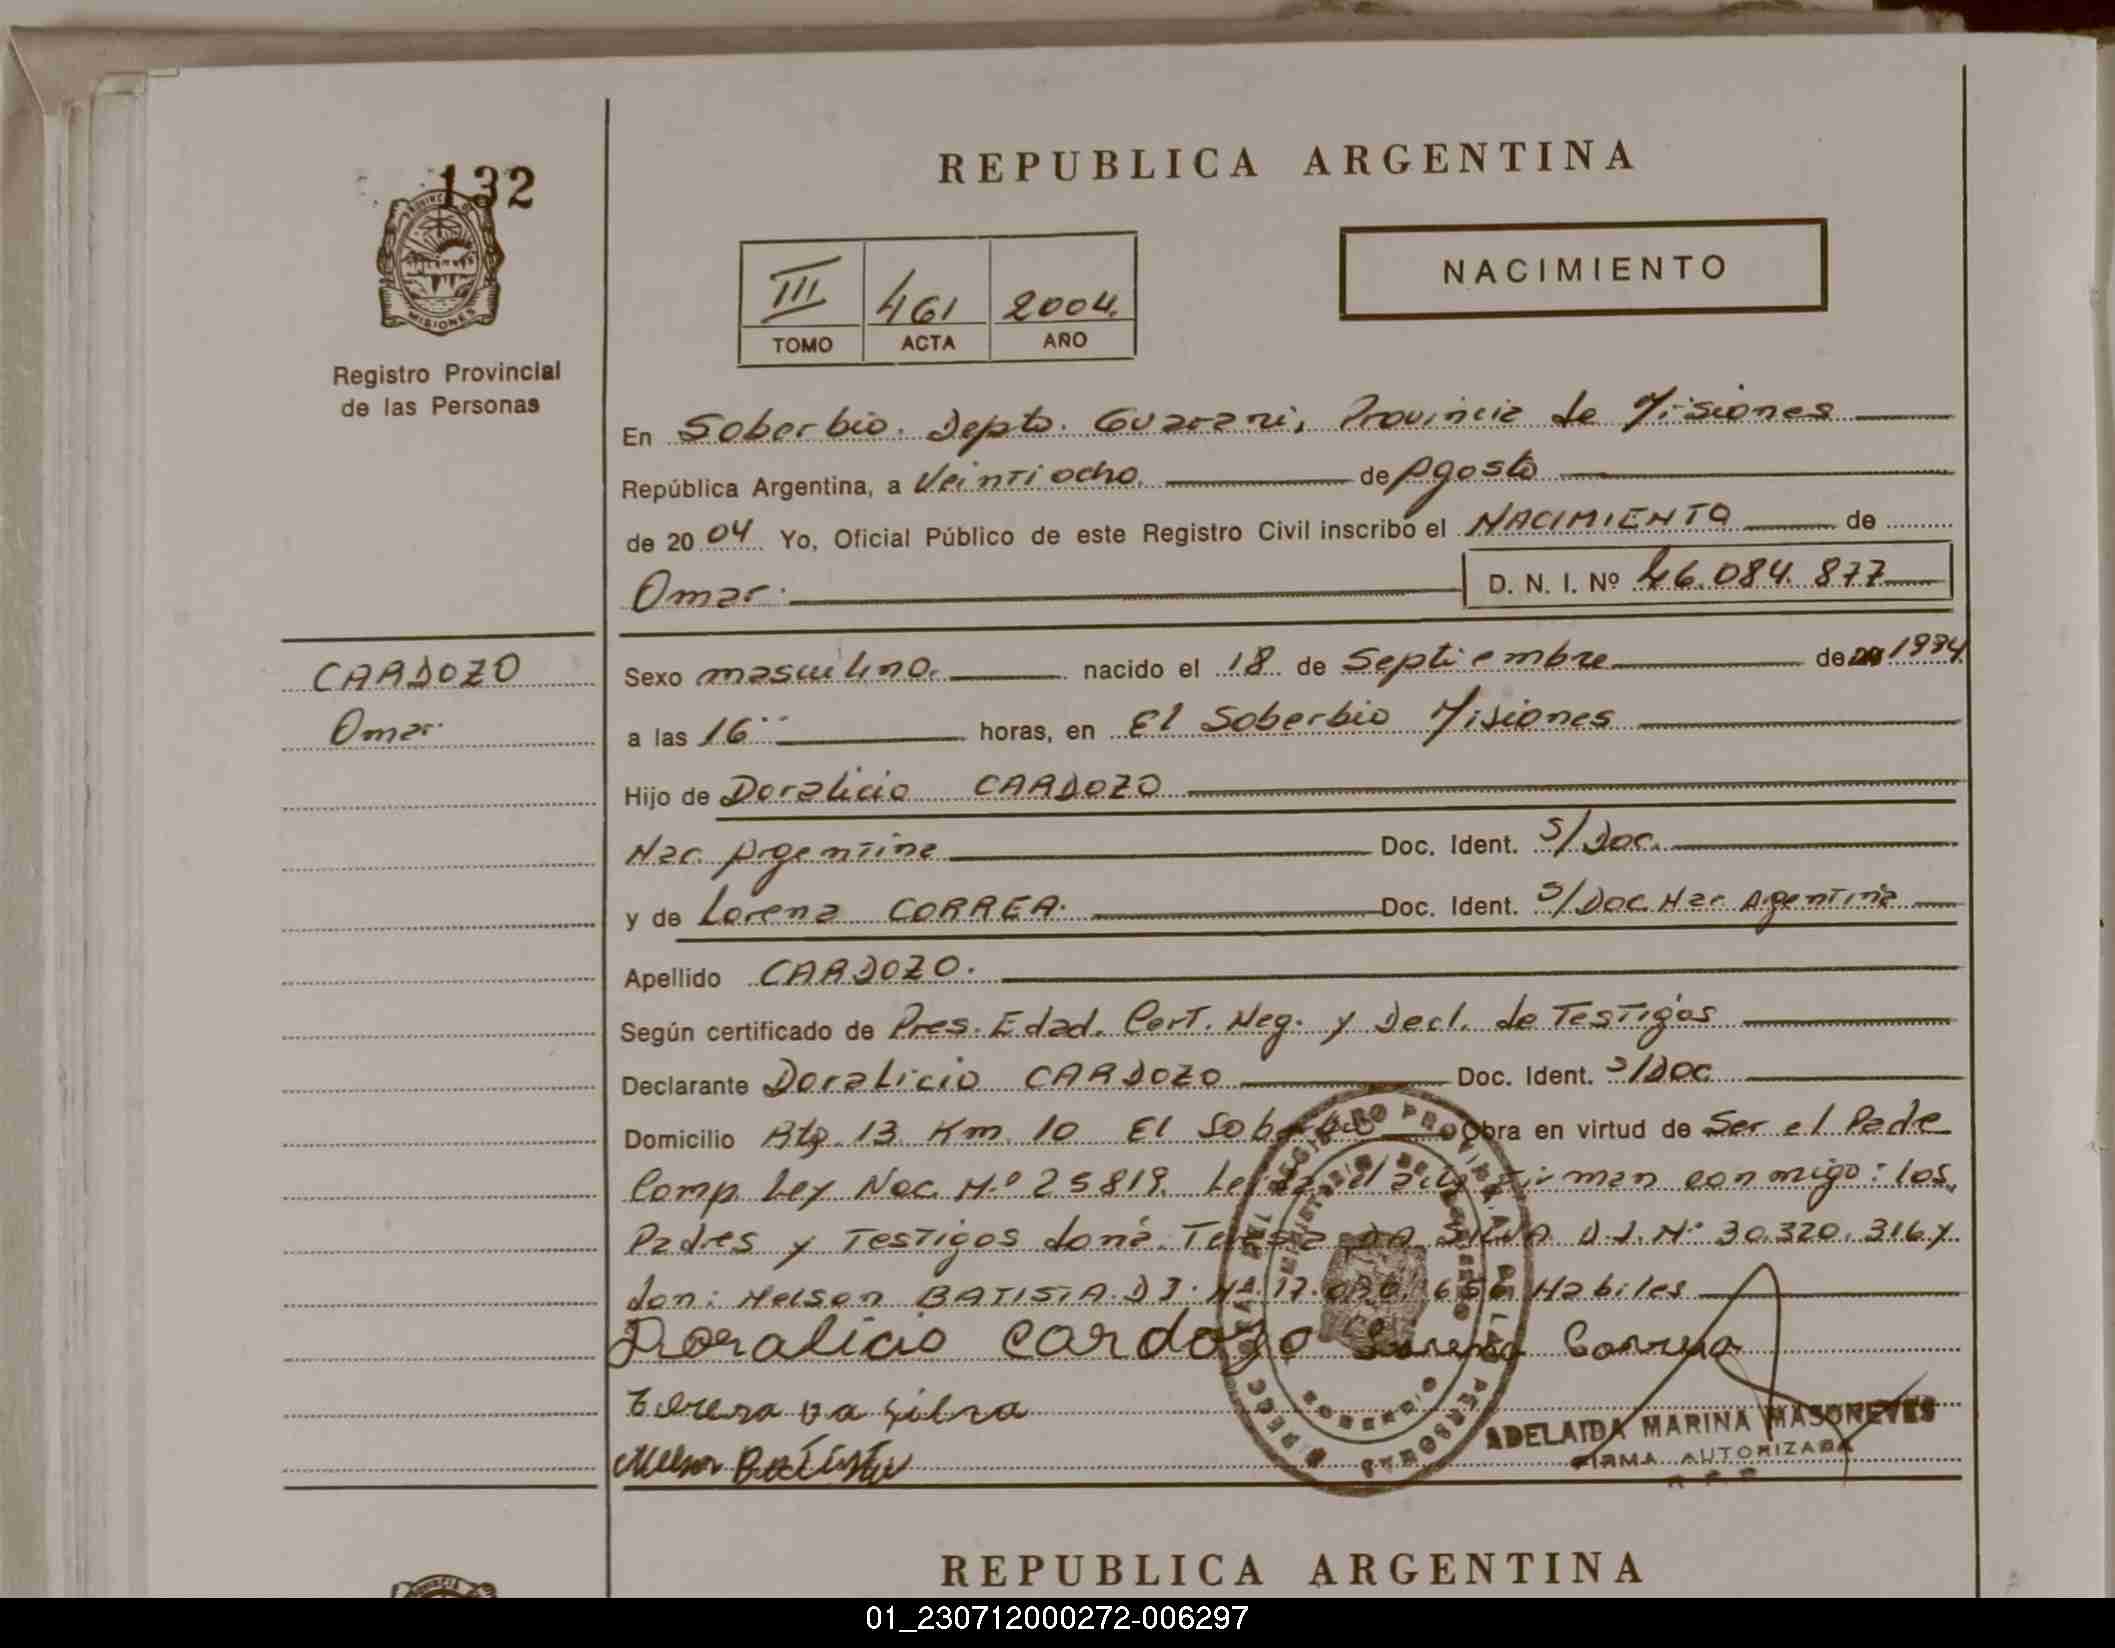 132
PROVINCIA DE
MISIONES
Registro Provincial
de las Personas
REPUBLICA ARGENTINA
NACIMIENTO
III 461 2004.
TOMO ACTA AÑO
En Soberbio. Depto. Guarani, Provincia de Misiones
República Argentina, a Veintiocho. de Agosto
de 2004 Yo, Oficial Público de este Registro Civil inscribo el NACIMIENTO de
Omar. D. N. I. Nº 46.084.877
CARDOZO
Omar.
Sexo masculino. nacido el 18 de Septiembre de 1994
a las 16 horas, en El Soberbio Misiones
Hijo de Doralicio CARDOZO
Nac. Argentina Doc. Ident. S/Doc.
y de Lorena CORREA. Doc. Ident. S/Doc Nac Agentina
Apellido CARDOZO.
Según certificado de Pres. Edad. Cert. Neg. y Decl. de Testigos
Declarante Doralicio CARDOZO Doc. Ident. S/Doc
Domicilio Rta 13 Km 10 El Soberbio Obra en virtud de Ser el Pade
Comp Ley Nac. N.º 25819. Leida el acta Firman conmigo: los
Padres y Testigos doña Teresa DA SILVA D.I. Nº 30.320.316 y
don: Nelson BATISTA. D I. Nº 17. 656 Habiles
Doralicio Cardozo Lorena Correa
Teresa da Silva
Nelson Batista
REGISTRO PROVINCIAL DE LAS PERSONAS
MINISTERIO DE GOBIERNO
SOBERBIO
ADELAIDA MARINA MASONEVES
FIRMA AUTORIZADA
R P P
REPUBLICA ARGENTINA
01_230712000272-006297